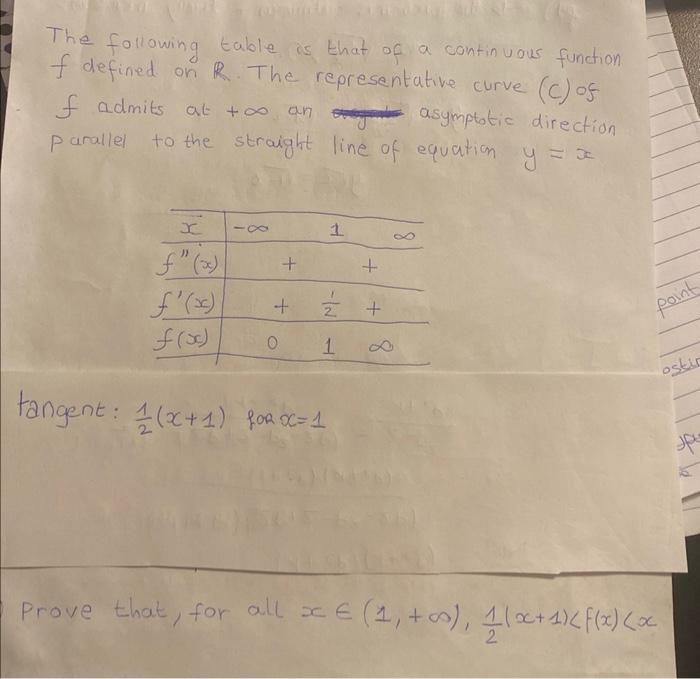 The following table is that of a continuous function
f defined on R. The representative curve (C) of
f admits at +∞ an asymptotic direction
parallel to the straight line of equation y = x
x -∞ 1 ∞
f''(x) + +
f'(x) + 1/2 +
f(x) 0 1 ∞
point
tangent: 1/2 (x+1) for x=1
Prove that, for all x ∈ (1, +∞), 1/2 (x+1) < f(x) < x